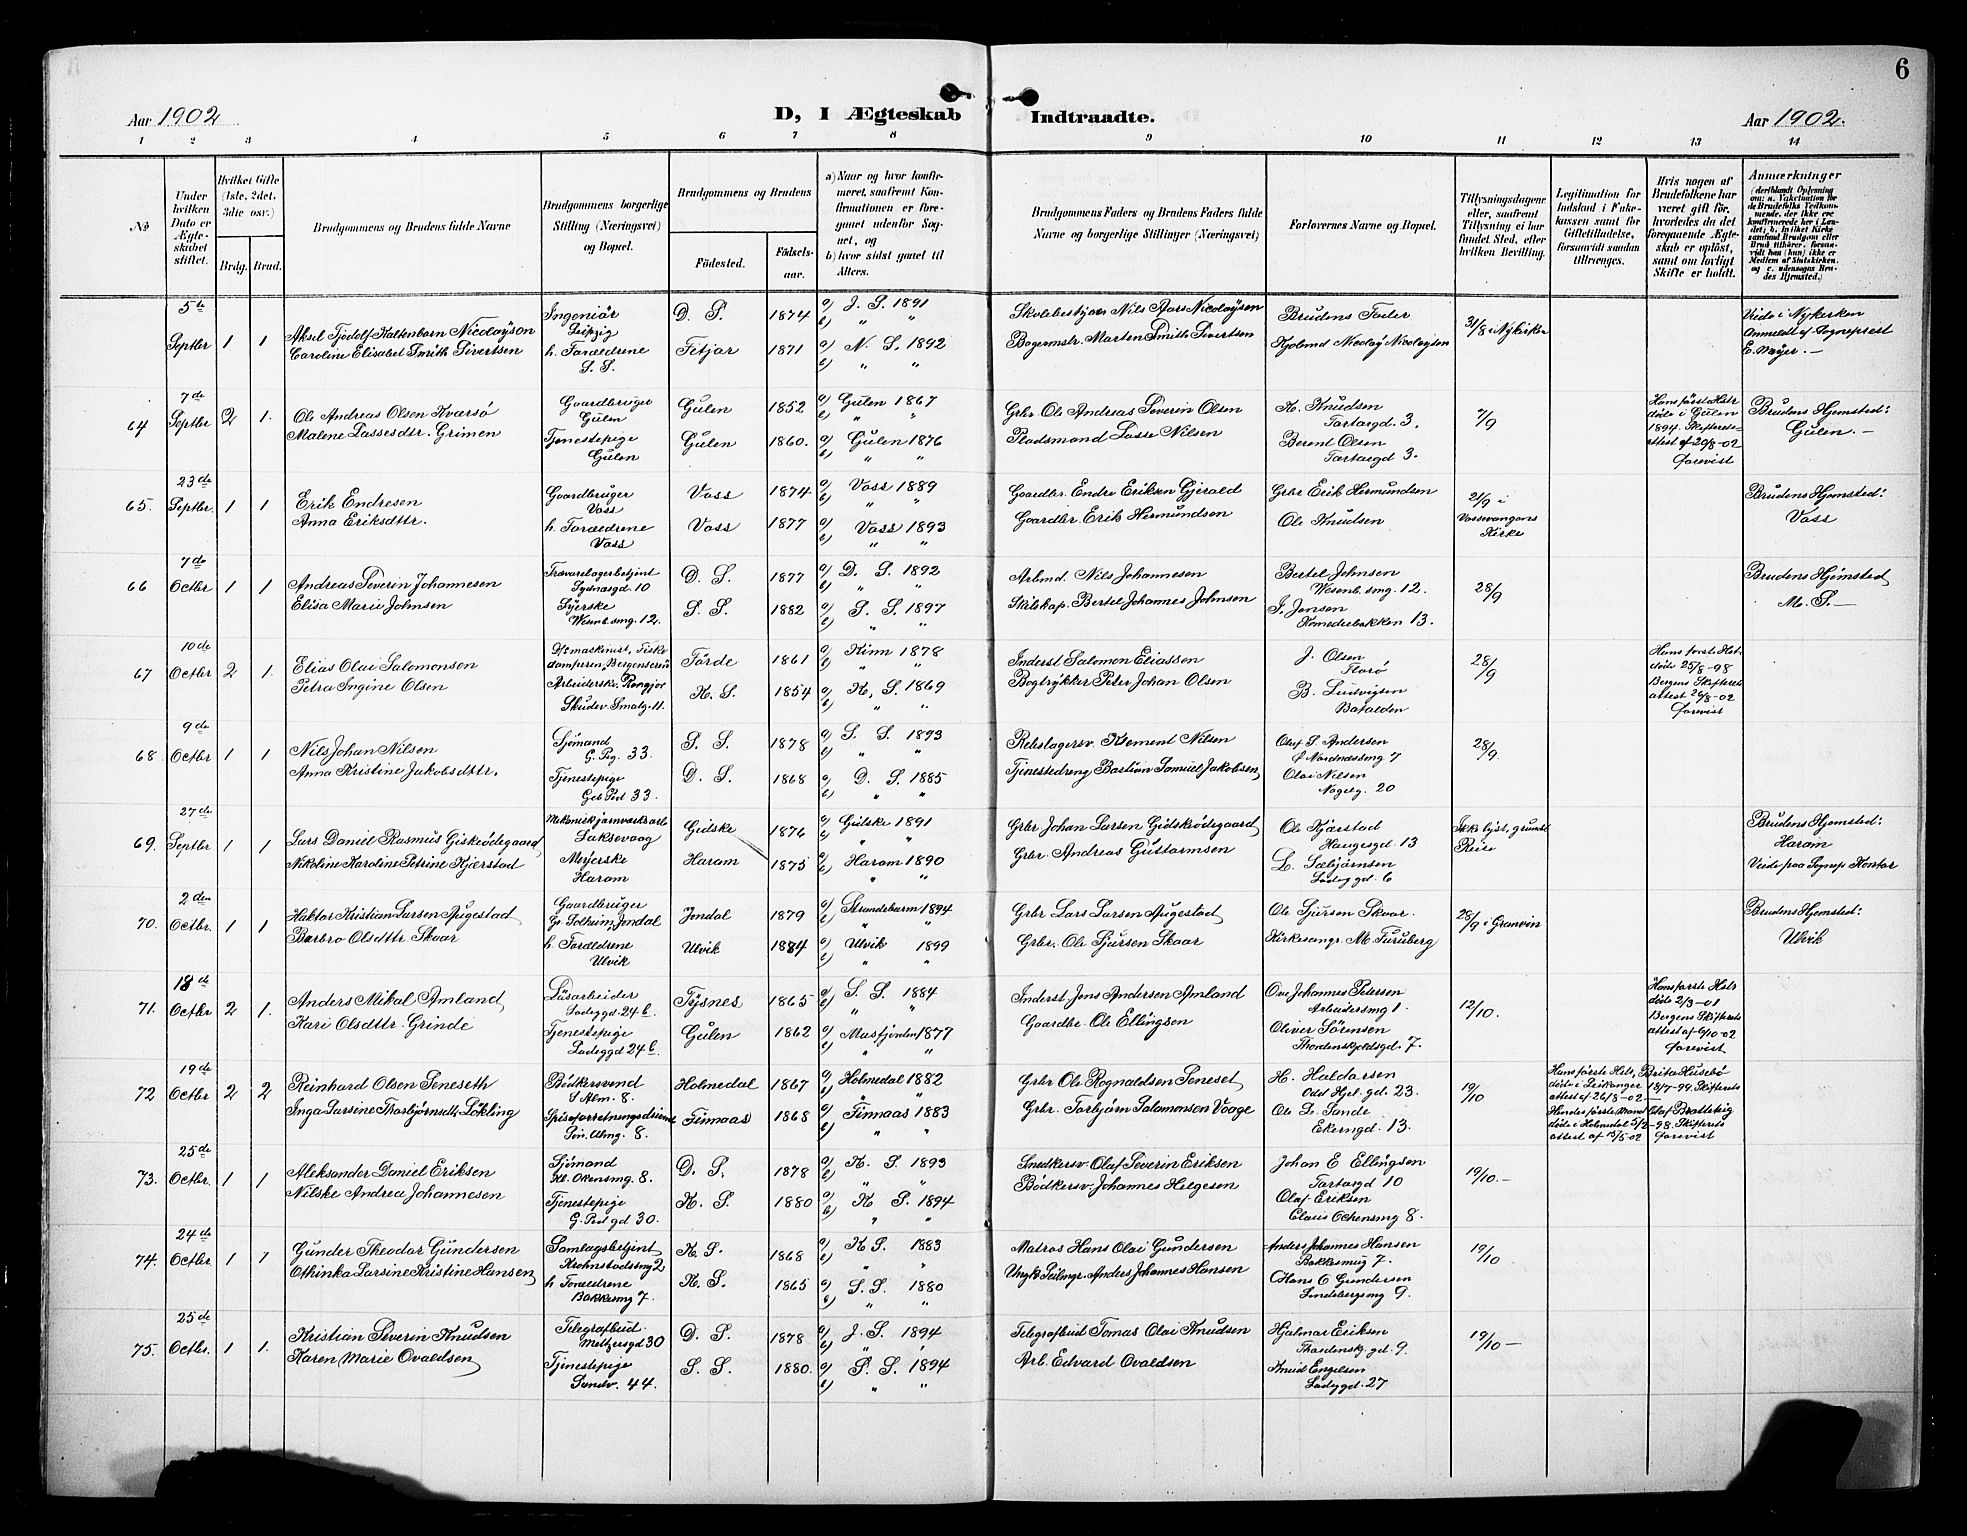 6
Aar 1902
D, I Ægteskab Indtraadte.
Aar 1902.
1 2 3 4 5 6 7 8 9 10 11 12 13 14
No
Under hvilken Dato er Ægteskabet stiftet.
Hvilket Gifte (1ste, 2det, 3die osv.)
Brdg. Brud.
Brudgommens og Brudens fulde Navne
Brudgommens borgerlige Stilling (Næringsvei) og Bopæl.
Brudgommens og Brudens
Fødested.
Fødselsaar.
a) Naar og hvor konfirmeret, saafremt Konfirmationen er foregaaet udenfor Sognet, og
b) hvor sidst gaaet til Alters.
Brudgommens Faders og Brudens Faders fulde Navne og borgerlige Stillinger (Næringsvei)
Forlovernes Navne og Bopæl.
Tillysningsdagene eller, saafremt Tillysning ei har fundet Sted, efter hvilken Bevilling.
Legitimation for Indskud i Enkekassen samt for Giftetilladelse, forsaavidt saadan tiltrænges.
Hvis nogen af Brudefolkene har været gift før, hvorledes da det foregaaende Ægteskab er opløst, samt om lovligt Skifte er holdt.
Anmærkninger
5te Septbr 1 1
Aksel Tjodolf Kaltenborn Nicolaysen
Caroline Elisabet Smith Sivertsen
Ingeniør
Leipzig
h. Forældrene
S. S.
D. S. 1874 a) J. S. 1891
b) " "
Fetjar 1871 a) N. S. 1892
b) " "
Skolebestyrer Nils Aars Nicolaysen
Bogernstr. Marten Smith Sivertsen
Brudens Fader
Kjøbmd Nicolay Nicolaysen
31/8 i Nykirke
Viede i Nykirken
Anmeldt af Sogneprest
E. Mayer. —
64 7de Septbr 2 1.
Ole Andreas Olsen Kversø
Malene Lassesdtr. Grimen
Gaardbruger
Gulen
Tjenestepige
Gulen
Gulen 1852 a) Gulen 1867
b) " "
Gulen 1860. a) Gulen 1876
b) " "
Grbr Ole Andreas Severin Olsen
Pladsmand Lasse Nilsen
K. Knudsen
Tartargd. 3.
Berent Olsen
Tartargd 3.
7/9
Hans første Hstr
døde i Gulen
1894. Skifterets-
attest af 20/8-02
forevist
Brudens Hjemsted:
Gulen. —
65. 23de Septbr 1 1
Erik Endresen
Anna Eriksdttr.
Gaardbruger
Voss
h. Forældrene
Voss
Voss 1874 a) Voss 1889
b) " "
Voss 1877 a) Voss 1893
b) " "
Gaardbr. Endre Eriksen Gjerald
Gaardbr Erik Hermundsen
Grbr Erik Hermundsen
Ole Knudsen
21/9 i
Vossevangens
Kirke
Brudens Hjemsted:
Voss
66 7de Octbr 1 1
Andreas Severin Johannesen
Elisa Marie Johnsen
Trævarelagerbetjent
Sydnæsgd. 10
Syerske
Wesenb. smg. 12.
D. S. 1877 a) D. S. 1892
b) " "
S. S. 1882 a) S. S. 1897
b) " "
Arbmd. Nils Johannesen
Skilskap. Bertel Johannes Johnsen
Bertel Johnsen
Wesenb. smg. 12.
J. Jensen
Komediebakken 13.
28/9
Brudens Hjemsted
M. S. —
67 10de Octbr 2 1.
Elias Olai Salomonsen
Petra Ingine Olsen
damperen, Bergenseren
Arbeiderske,
Skudev. Smalg. 11.
Førde 1861 a) Kinn 1878
b) " "
K. S. 1854 a) K. S. 1869
b) " "
Inderst Salomon Eliassen
Bogtrykker Peter Johan Olsen
J. Olsen
Florø
B. Ludvigsen
Batalden
28/9
Hans første Hst.
døde 25/8-98
Bergens Skifterets
attest 26/8-02
forevist
68. 9de Octbr 1 1
Nils Johan Nilsen
Anna Kristine Jakobsdttr.
Sjømand
G. Pog. 33.
Tjenestepige
Geb Pod 33.
S. S. 1878 a) S. S. 1893
b) " "
D. S. 1868 a) D. S. 1885
b) " "
Rebslagersv. Klement Nilsen
Tjenestedreng Bastian Samuel Jakobsen
Oluf S. Andersen
L Nordnæssmg 7
Olai Nilsen
Nøgelg. 20
28/9.
69. 27de Septbr 1 1
Lars Daniel Rasmus Giskeødegaard
Nikoline Karoline Petrine Kjærstad
Mekanisk jernværksarb
Laksevaag
Meierske
Haram
Gidske 1876 a) Gidske 1891
b) " "
Haram 1875 a) Haram 1890
b) " "
Grbr Johan Larsen Gidskeødegaard
Grbr. Andreas Guttormsen
Ole Kjærstad
Haugesgd. 13
L. Sæbjørnsen
Ladeg gd. 6
Ikke lyst, grundet
Reise
Brudens Hjemsted:
Haram
Viede paa Sognep Kontor
70. 2den Octbr. 1 1
Haktor Kristian Larsen Augestad
Barbro Olsdttr Skaar
Gaardbruger
Gr. Solheim, Jondal
h. Forældrene
Ulvik
Jondal 1879 a) Strandebarm 1894
b) "
Ulvik 1884 a) Ulvik 1899
b) " "
Grbr Lars Larsen Augestad
Grbr. Ole Sjursen Skaar
Ole Sjursen Skaar.
Kirkesangr. M. Furuberg
28/9 i Granvin
Brudens Hjemsted:
Ulvik
71. 18de Octbr 2 1.
Anders Mikal Amland
Kari Olsdttr. Grinde
Løsarbeider
Ladeggd. 24 b
Tjenestepige
Ladeggd 24 b
Tysnes 1865 a) S. S. 1884
b) " "
Gulen 1862 a) Masfjorden 1877
b) " "
Inderst Jens Andersen Amland
Gaardbr. Ole Ellingsen
Ove Johannes Petersen
Arbeidersmg 1.
Oliver Sørensen
Thordenskjoldsgd. 7.
12/10.
Hans første Hst
døde 2/3-01
Bergens Skifterets
attest af 6/10-02
forevist
72 19de Octbr 2 2
Reinhard Olsen Seneseth
Inga Larsine Thorbjørnsdtr Løkling
Bødkersvend
S Alm. 8.
Spiseforretningsdrivende
Sin. Almg. 8.
Holmedal 1867 a) Holmedal 1882
b) " "
Finnaas 1868 a) Finnaas 1883
b) " "
Grbr Ole Rognaldsen Seneset
Grbr. Torbjørn Salomonsen Vaage
H. Haldorsen
Odd Hjel. gd. 23.
Ole L. Sande
Ekerngd. 13.
19/10
Hans første Hst, Brita Husebø
døde i Leikanger 18/7-94. Skifterets
attest af 26/8-02—
Hendes første Mand Olaf Brattebig
døde i Holmedal 5/2-98. Skifterets
attest af 15/5-02 forevist
73. 25de Octbr. 1 1
Aleksander Daniel Eriksen
Nilske Andrea Johannesen
Sjømand
Kl. Okensmg. 8.
Tjenestepige
G. Pod gd 30.
D. S. 1878 a) K. S. 1893
b) " "
K. S. 1880 a) K. S. 1894
b) " "
Snedkersv. Olaf Severin Eriksen
Bødkersv. Johannes Helgesen
Johan E Ellingsen
Tartargd 10
Olaf Eriksen
Claus Ockensmg 8.
19/10. —
74. 24de Octbr. 1 1
Gunder Theodor Gundersen
Othinka Larsine Kristine Hansen
Samlagsbetjent
Krohnstadsmg 2
h Forældrene
Bakkesmg 7.
K. S. 1868 a) K S. 1883
b) " "
K. S. 1865 a) S. S. 1880
b) " "
Matros Hans Olai Gundersen
Ungk Seilmgr. Anders Johannes Hansen
Anders Johannes Hansen
Bakkesmug 7.
Hans C Gundersen
Lindebergsmg 9.
19/10
75. 25de Octbr. 1 1.
Kristian Severin Knudsen
Karen Marie Ovaldsen
Telegrafbud.
Meltzersgd 30
Tjenestepige
Sandv. 44.
D. S. 1878 a) J. S. 1894
b) " "
S. S. 1880. a) S. S. 1894
b) " "
Telegrafbud Tomas Olai Knudsen
Arb. Edvard Ovaldsen
Hjalmar Eriksen
Thordensk. gd. 9.
Knud Engelsen
Ladeggd. 27
19/10 —